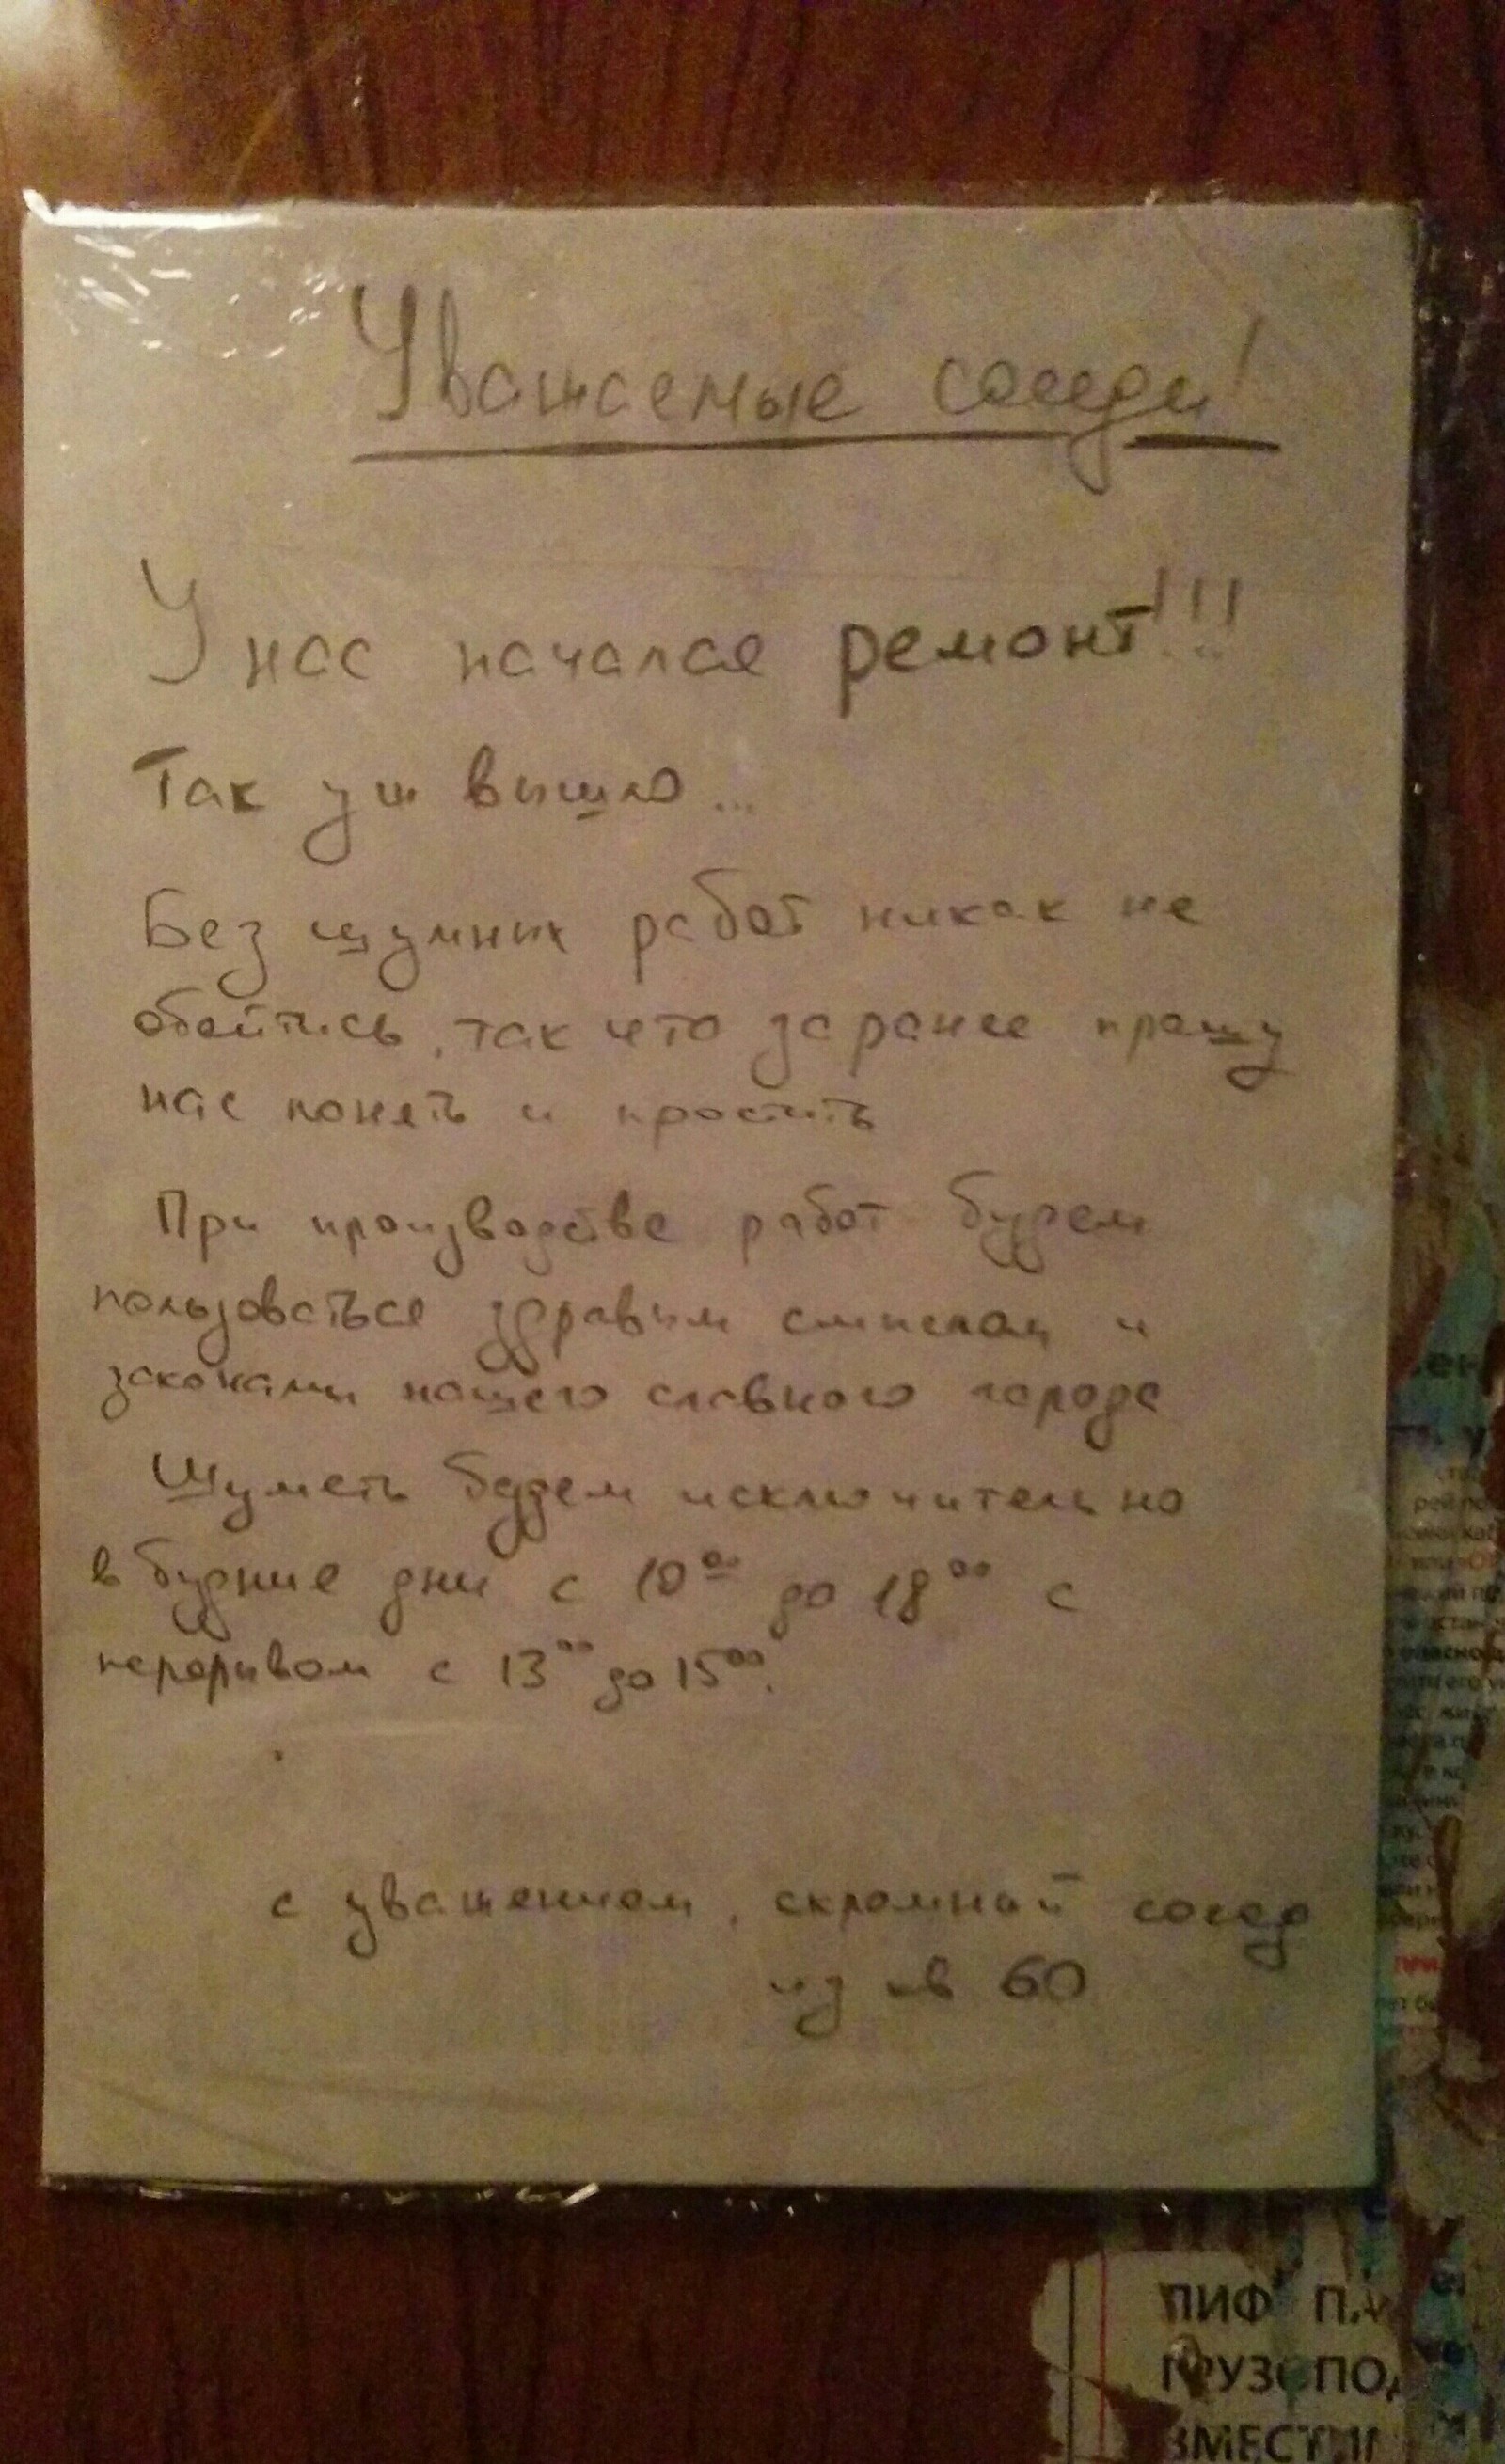 Уважаемые соседи!
У нас начался ремонт!!!
Так уш вышло...
Без шумных работ никак не
обойтись, так что заранее прошу
нас понять и простить
При производстве работ будем
пользоваться здравым смыслом и
законами нашего славного города
Шуметь будем исключительно
в будние дни с 10⁰⁰ до 18⁰⁰ с
перерывом с 13⁰⁰ до 15⁰⁰.
с уважением, скромный сосед
из кв 60
ЛИФ